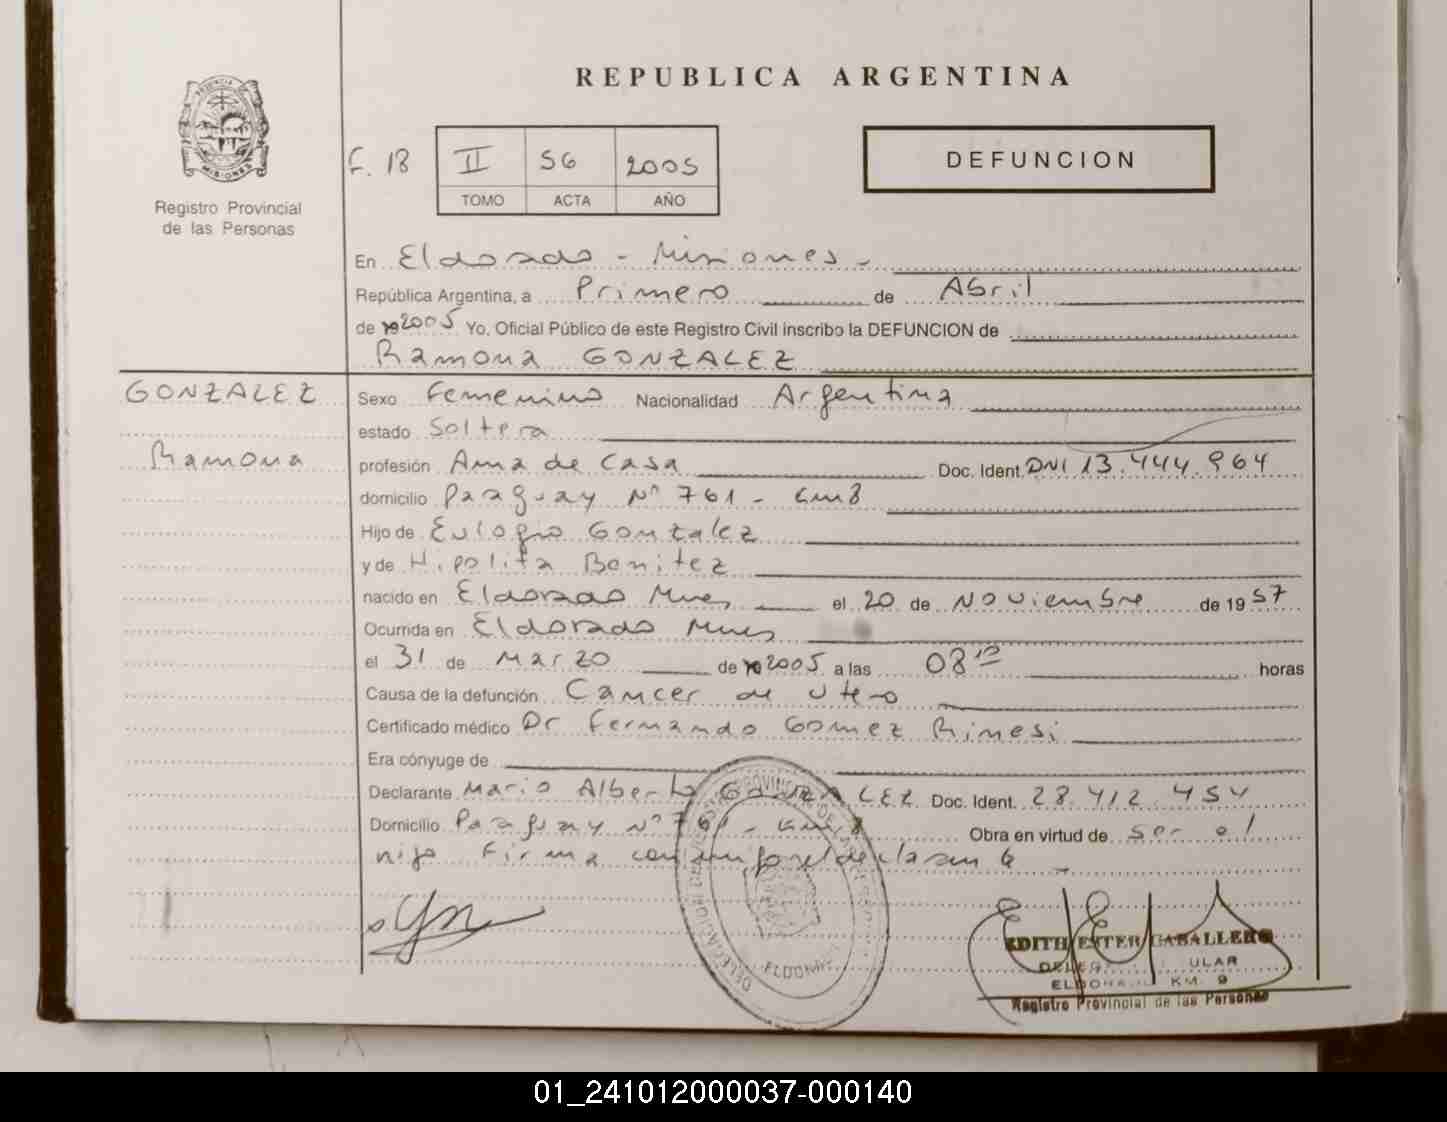 REPUBLICA ARGENTINA
PROVINCIA DE
MISIONES
Registro Provincial
de las Personas
F. 18
II 56 2005
TOMO ACTA AÑO
DEFUNCION
En Eldorado - Misiones -
República Argentina, a Primero de Abril
de 2005 Yo, Oficial Público de este Registro Civil inscribo la DEFUNCION de
Ramona GONZALEZ
GONZALEZ
Ramona
Sexo Femenino Nacionalidad Argentina
estado Soltera
profesión Ama de Casa Doc. Ident. DNI 13.444.964
domicilio Paraguay Nº 761 - Km 8
Hijo de Eulogio Gonzalez
y de Hipolita Benitez
nacido en Eldorado Mnes el 20 de Noviembre de 1957
Ocurrida en Eldorado Mnes
el 31 de Marzo de 2005 a las 08 10 horas
Causa de la defunción Cancer de Utero
Certificado médico Dr Fernando Gomez Rimesi
Era cónyuge de
Declarante Mario Alberto GONZALEZ Doc. Ident. 28.412.454
Domicilio Paraguay Nº 761 - Km 8 Obra en virtud de ser el
hijo Firma conmigo el declarante
ELDORADO
EDITH ESTER CABALLERO
ULAR
ELDORADO KM. 9
Registro Provincial de las Personas
01_241012000037-000140